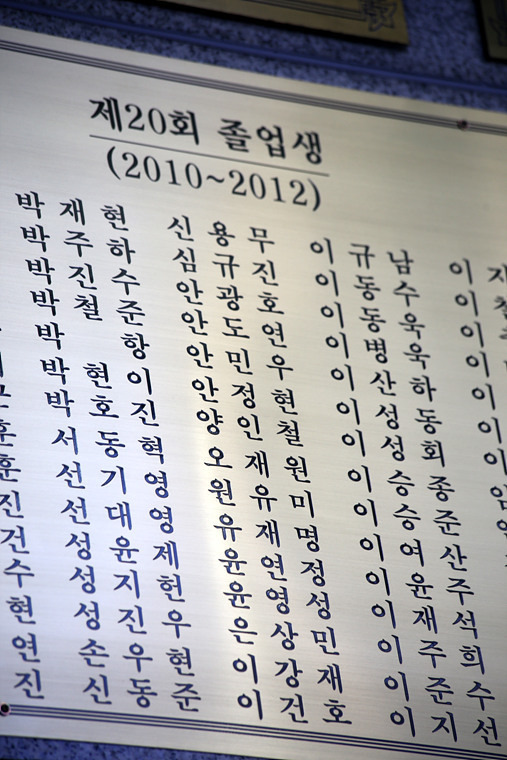 제20회 졸업생
(2010~2012)
훈
훈
진
건
수
현
연
진
박 재 현
박 주 하
박 진 수
박 철 준
박 항
박 현 이
박 호 진
서 동 혁
선 기 영
선 대 영
성 윤 제
성 지 헌
성 진 우
손 우 현
신 동 준
신 용 무
심 규 진
안 광 호
안 도 연
안 민 우
안 정 현
양 인 철
오 재 원
원 유 미
유 재 명
윤 연 정
윤 영 성
은 상 민
이 강 재
이 건 호
이 규 남
이 동 수
이 동 욱
이 병 욱
이 산 하
이 성 동
이 성 회
이 승 종
이 승 준
이 여 산
이 윤 주
이 재 석
이 주 희
이 준 수
이 지 선
이
이
이
이
이
이
이
임